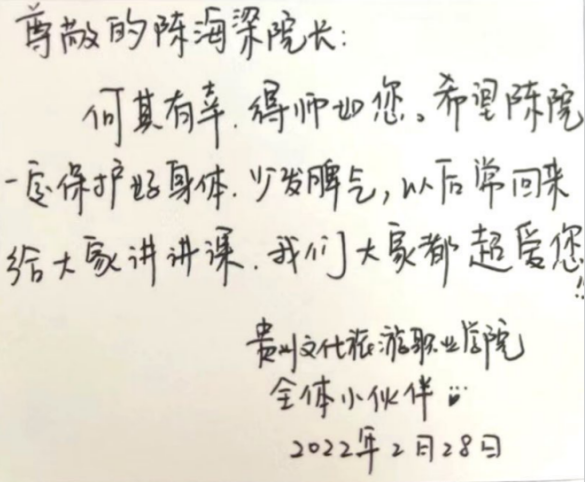 尊敬的陈海深院长:
何其有幸,得师如您。希望陈院
一定保护好身体,少发脾气,以后常回来
给大家讲讲课,我们大家都超爱您!!
贵州文化旅游职业学院
全体小伙伴
2022年2月28日